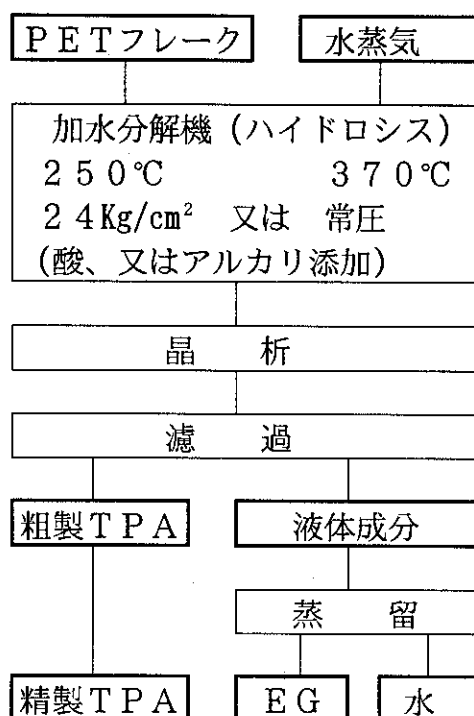 PETフレーク 水蒸気
加水分解機(ハイドロシス)
250℃ 370℃
24Kg/cm² 又は 常圧
(酸、又はアルカリ添加)
晶 析
濾 過
粗製TPA 液体成分
蒸 留
精製TPA EG 水